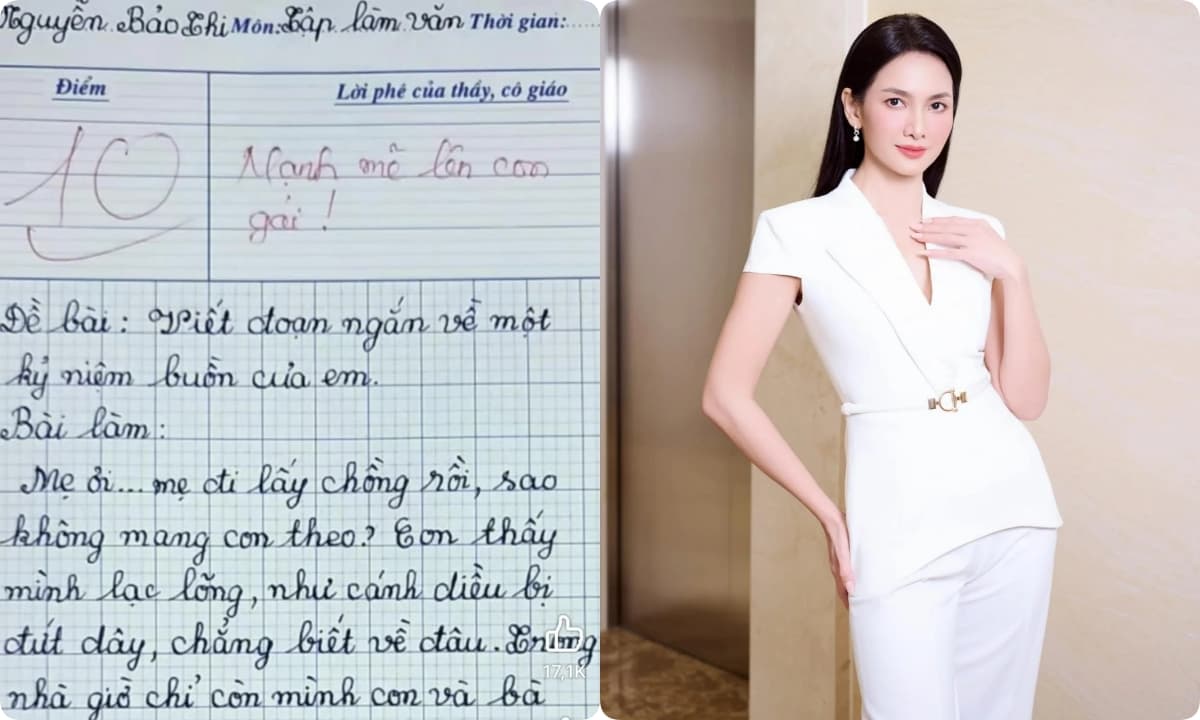 Nguyễn Bảo Thi Môn: Tập làm văn Thời gian:
Điểm
Lời phê của thầy, cô giáo
10
Mạnh mẽ lên con
gái !
Đề bài : Viết đoạn ngắn về một
kỷ niệm buồn của em.
Bài làm :
Mẹ ơi... mẹ đi lấy chồng rồi, sao
không mang con theo? Con thấy
mình lạc lõng, như cánh diều bị
đứt dây, chẳng biết về đâu. Trong
nhà giờ chỉ còn mình con và bà
17,1K